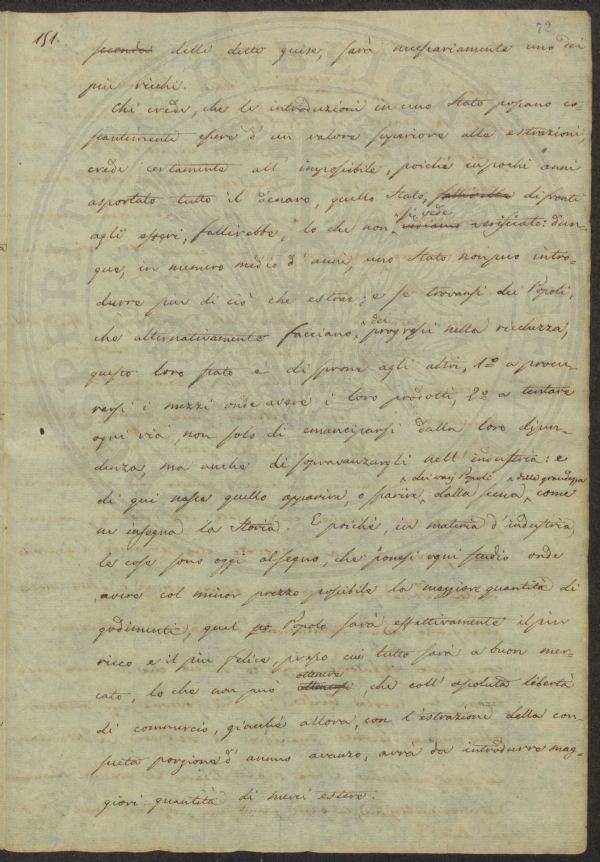 151.
72
secondo delle dette guise, sarà necessariamente uno dei
più ricchi.
Chi crede, che le introduzioni in uno Stato possano co-
stantemente essere d'un valore superiore alle estrazioni,
crede certamente all'impossibile, poiché in pochi anni
asportato tutto il denaro, quello Stato, fallirebbe di fronte
agli esteri, fallirebbe, lo che non vediamo verificato: dun-
si vede
que, in numero medio d'anni, uno Stato non può intro-
durre più di ciò che estrae; e se trovansi dei Popoli,
che alternativamente facciano, progressi nella ricchezza,
dei
questo loro stato è di sprone agli altri, 1.º a procu-
rarsi i mezzi onde avere i loro prodotti, 2.º a tentare
ogni via, non solo di emanciparsi dalla loro dipen-
denza, ma anche di sopravanzargli nell'industria: e
dei varj Popoli della grandezza
di qui nasce quello apparire, o sparire, dalla scena, come
ne insegna la Storia. E poiché, in materia d'industria,
le cose sono oggi al segno, che ponesi ogni studio onde
avere col minor prezzo possibile la maggiore quantità di
godimenti, quel po Popolo sarà effettivamente il più
ricco e il più felice, presso cui tutto sarà a buon mer-
ottenere
cato, lo che non può ottenersi che coll'assoluta libertà
di commercio, giacché allora, con l'estrazione della con-
sueta porzione d'annuo avanzo, avrà da introdurre mag-
giori quantità di merci estere.